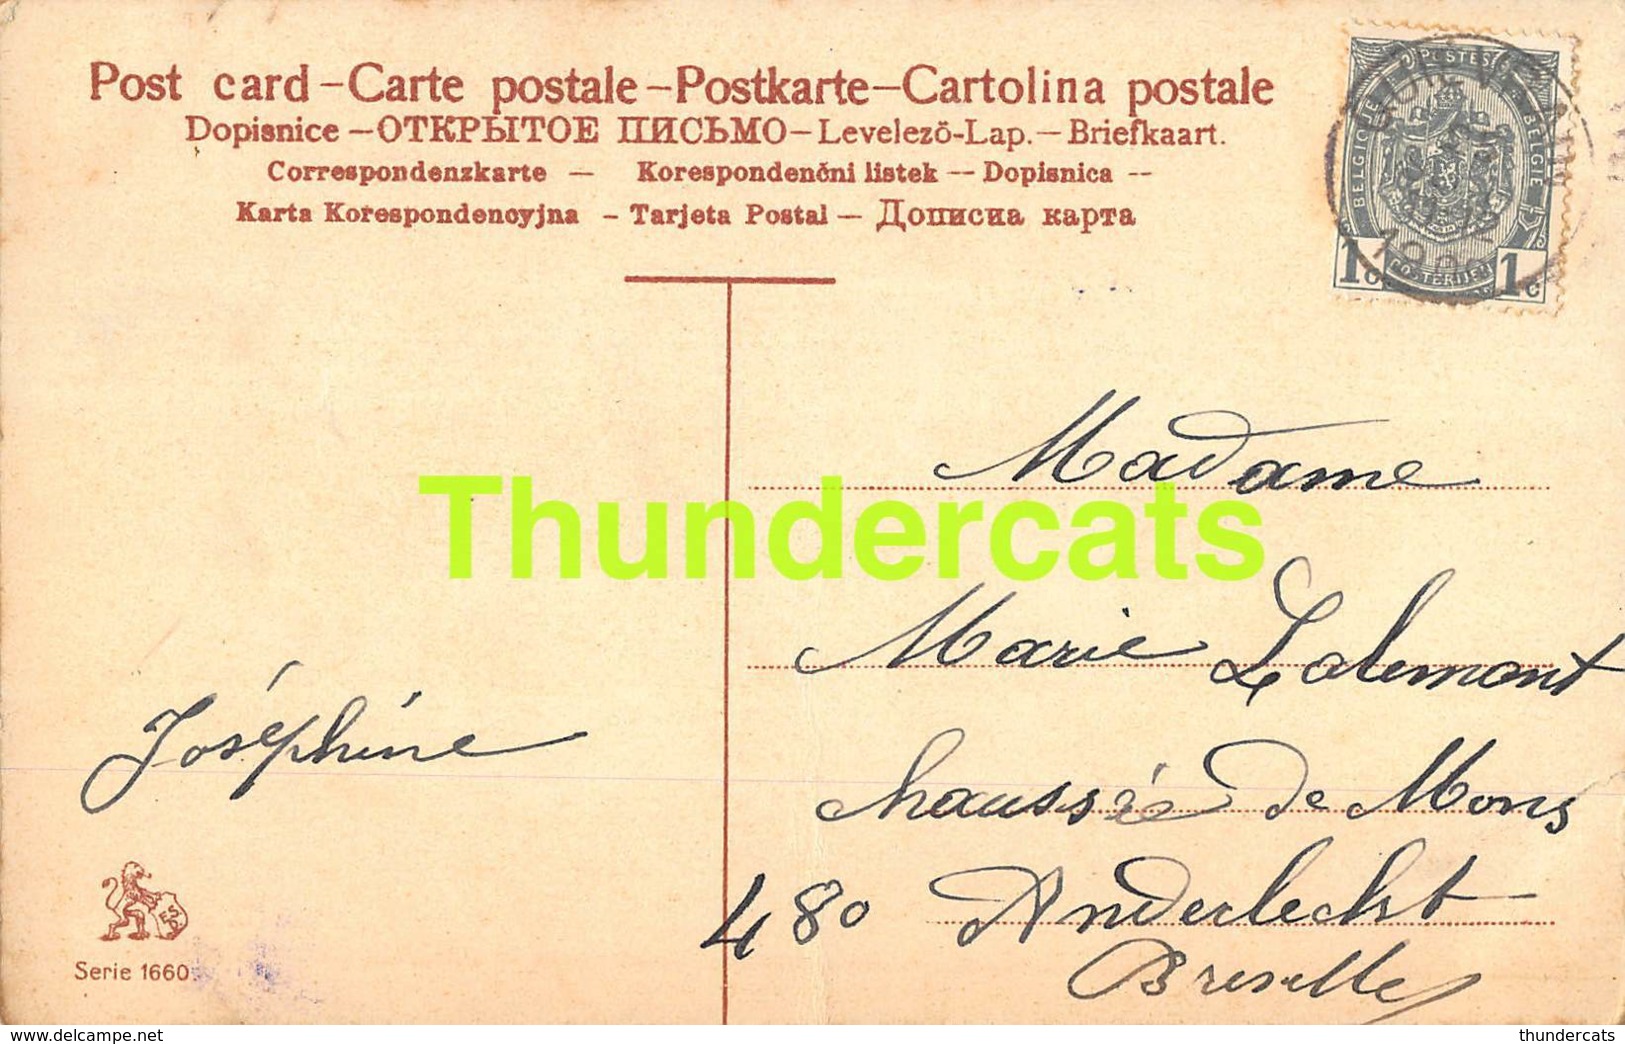 Post card – Carte postale – Postkarte – Cartolina postale
Dopisnice – ОТКРЫТОЕ ПИСЬМО – Levelezö-Lap. – Briefkaart.
Correspondenzkarte – Korespondenčni listek -- Dopisnica --
Karta Korespondencyjna – Tarjeta Postal – Дописна карта
POSTES
BELGIQUE
BELGIË
POSTERIJEN
1c 1c
Madame
Thundercats
Marie Lalemant
Joséphine
chaussée de Mons
480 Anderlecht
Bruxelles
ES
Serie 1660.
https://www.delcampe.net
thundercats